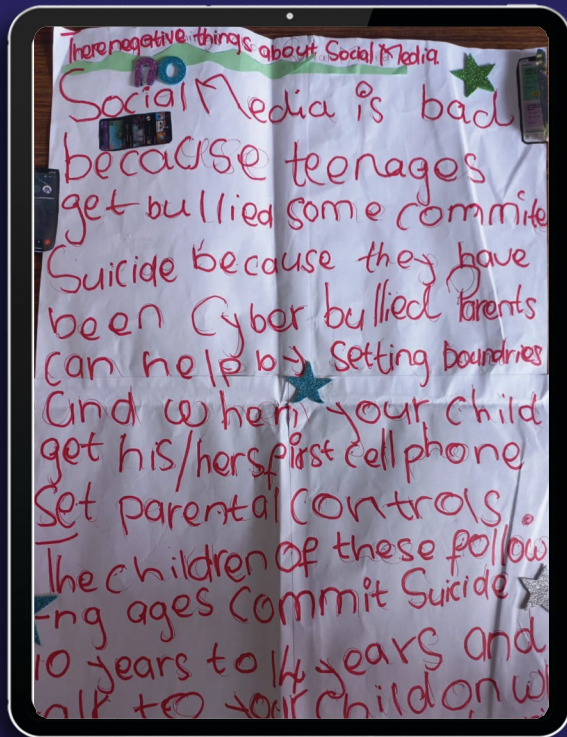 There negative things about Social Media.
no
Social Media is bad
becacuse teenages
get bullied some commite
Suicide because they have
been Cyber bullied Parents
can help by setting boundries
and when your child
get his/hers first cell phone
Set parental controls.
The children of these follow
-ng ages Commit Suicide
10 years to 14 years and
talk to your child on